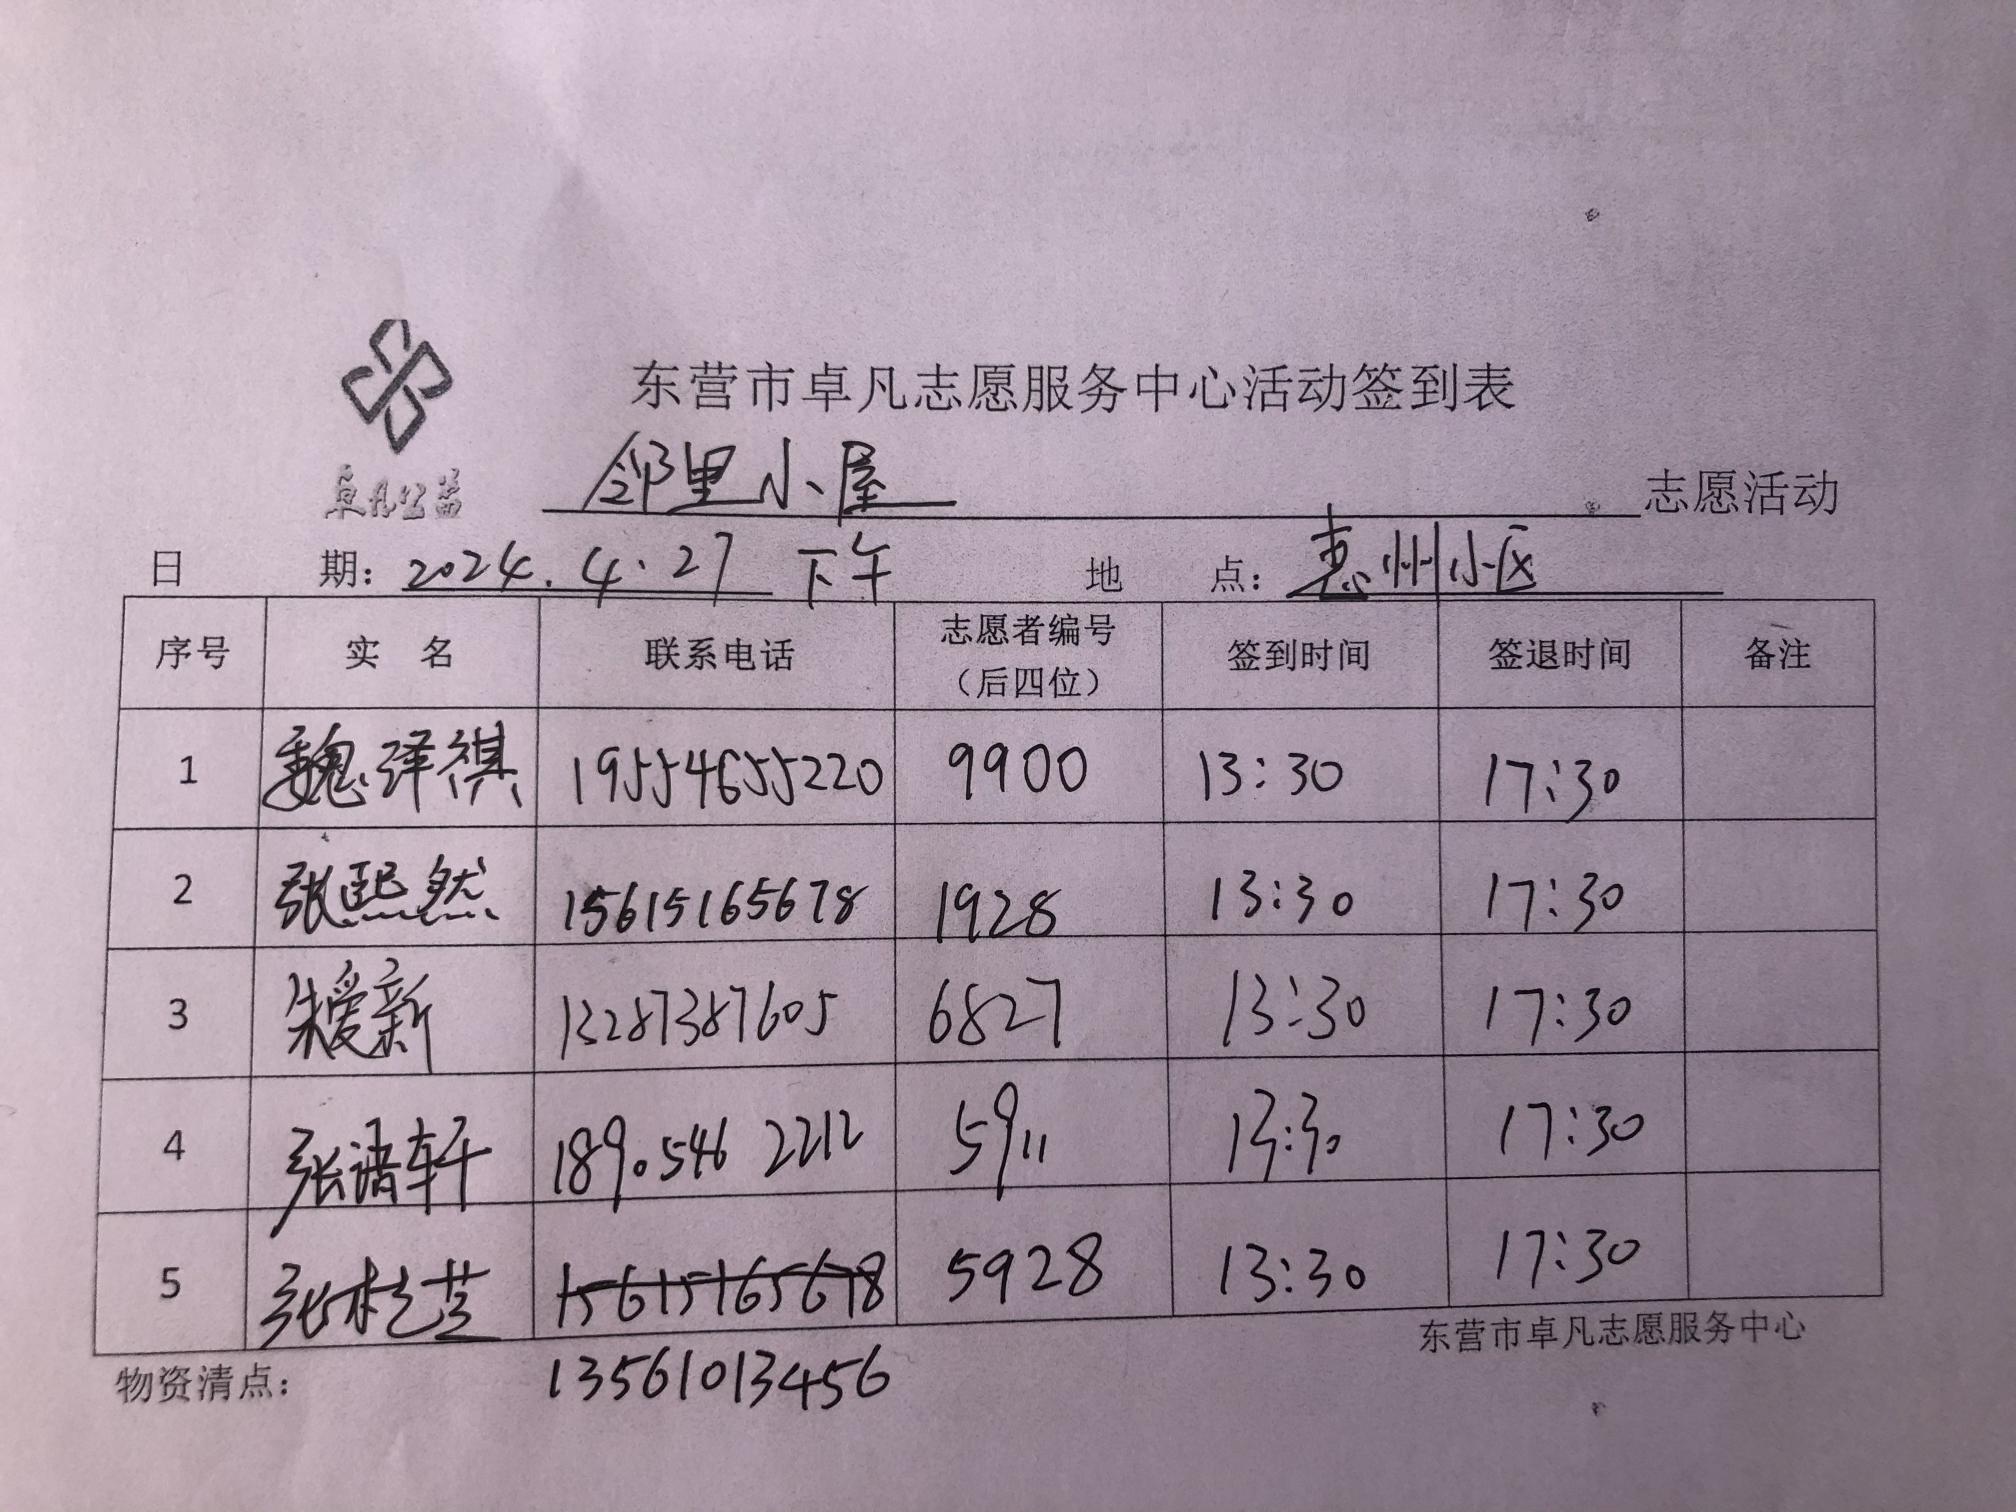 东营市卓凡志愿服务中心活动签到表
卓凡公益
邻里小屋 志愿活动
日 期：2024.4.27 下午 地 点：惠州小区
序号 实 名 联系电话 志愿者编号（后四位） 签到时间 签退时间 备注
1 魏泽祺 19554655220 9900 13:30 17:30
2 张熙然 15615165678 1928 13:30 17:30
3 朱爱新 13287387605 6827 13:30 17:30
4 张诸轩 189.546 2212 5911 13:30 17:30
5 张桂芝 15615165678 5928 13:30 17:30
东营市卓凡志愿服务中心
物资清点： 13561013456